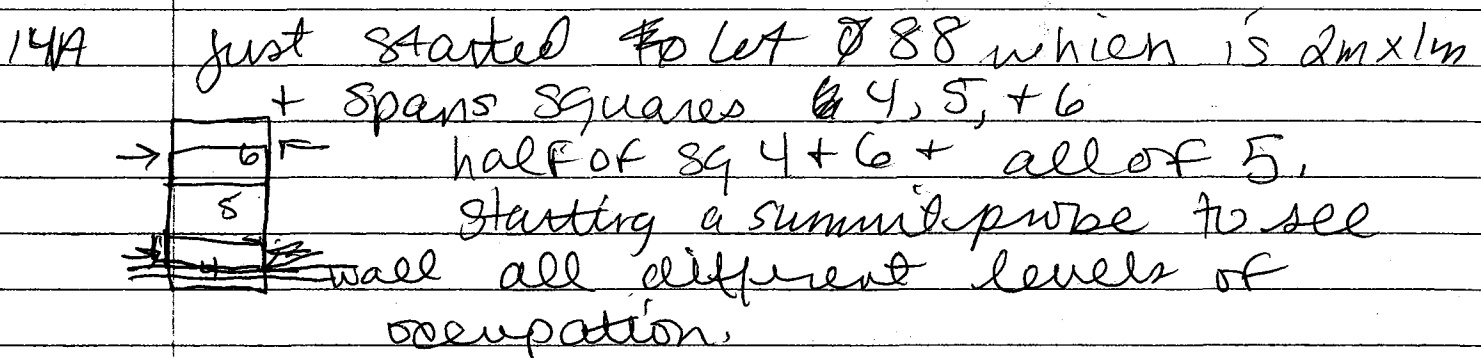 14A just started to Lot 88 which is 2m x 1m
+ spans squares 4, 5, + 6
6 half of sq 4 + 6 + all of 5.
5 starting a summit probe to see
4 wall all different levels of
occupation.